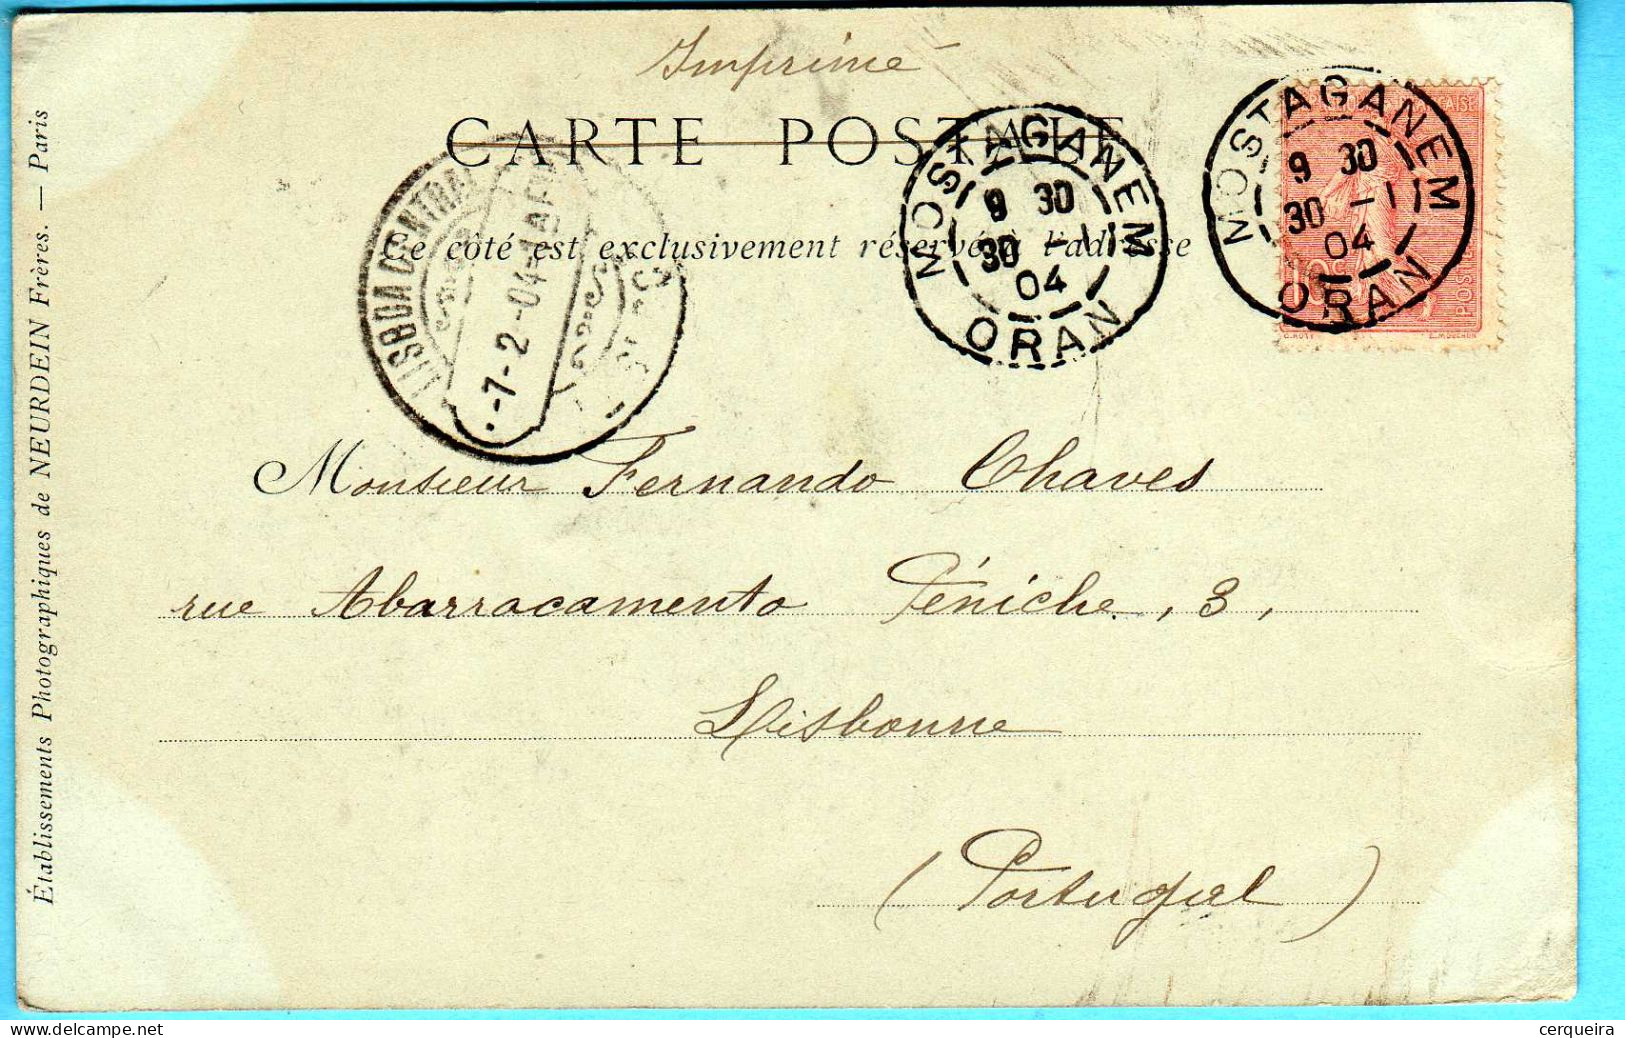 Imprimé
CARTE POSTALE
Ce côté est exclusivement réservé à l'adresse
MOSTAGANEM
9 30
30 -1
04
ORAN
MOSTAGANEM
9 30
30 -1
04
ORAN
LISBOA CENTRAL
-7-2-04
Monsieur Fernando Chaves
rue Abarracamento Péniche, 3,
Lisbonne
(Portugal)
Établissements Photographiques de NEURDEIN Frères. — Paris
cerqueira